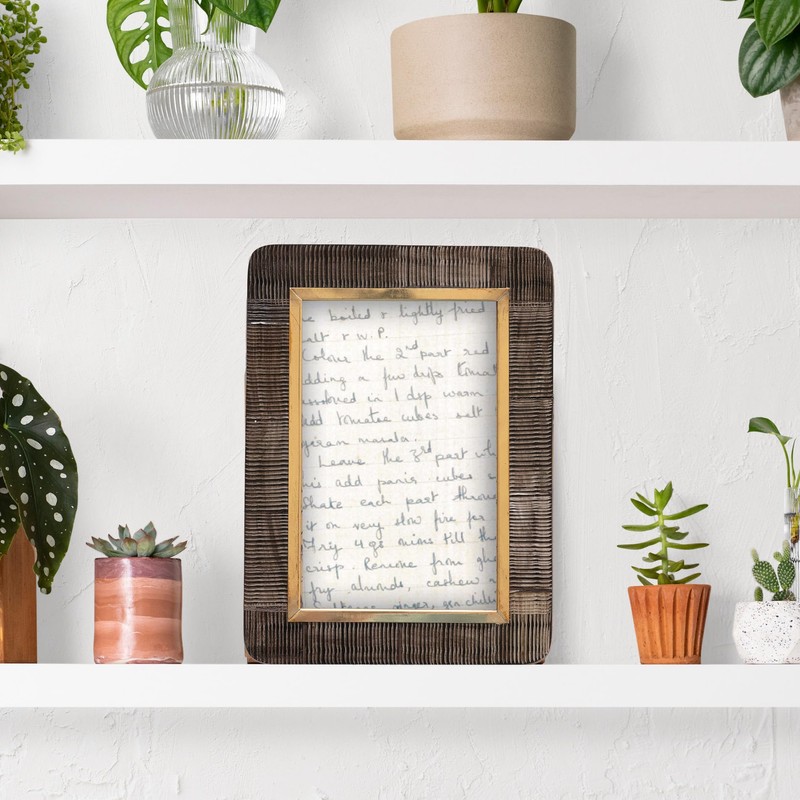 e boiled & lightly fried
alt & W.P.
Colour the 2nd part red
dding a few drops tomat
issolved in 1 dsp warm
dd tomatoe cubes salt
garam masala.
Leave the 3rd part whi
his add panir cubes
Shake each part throu
it on very slow fire for
Fry 4 gs onions till th
crisp. Remove from ghe
fry almonds, cashew n
ginger, grn chilli